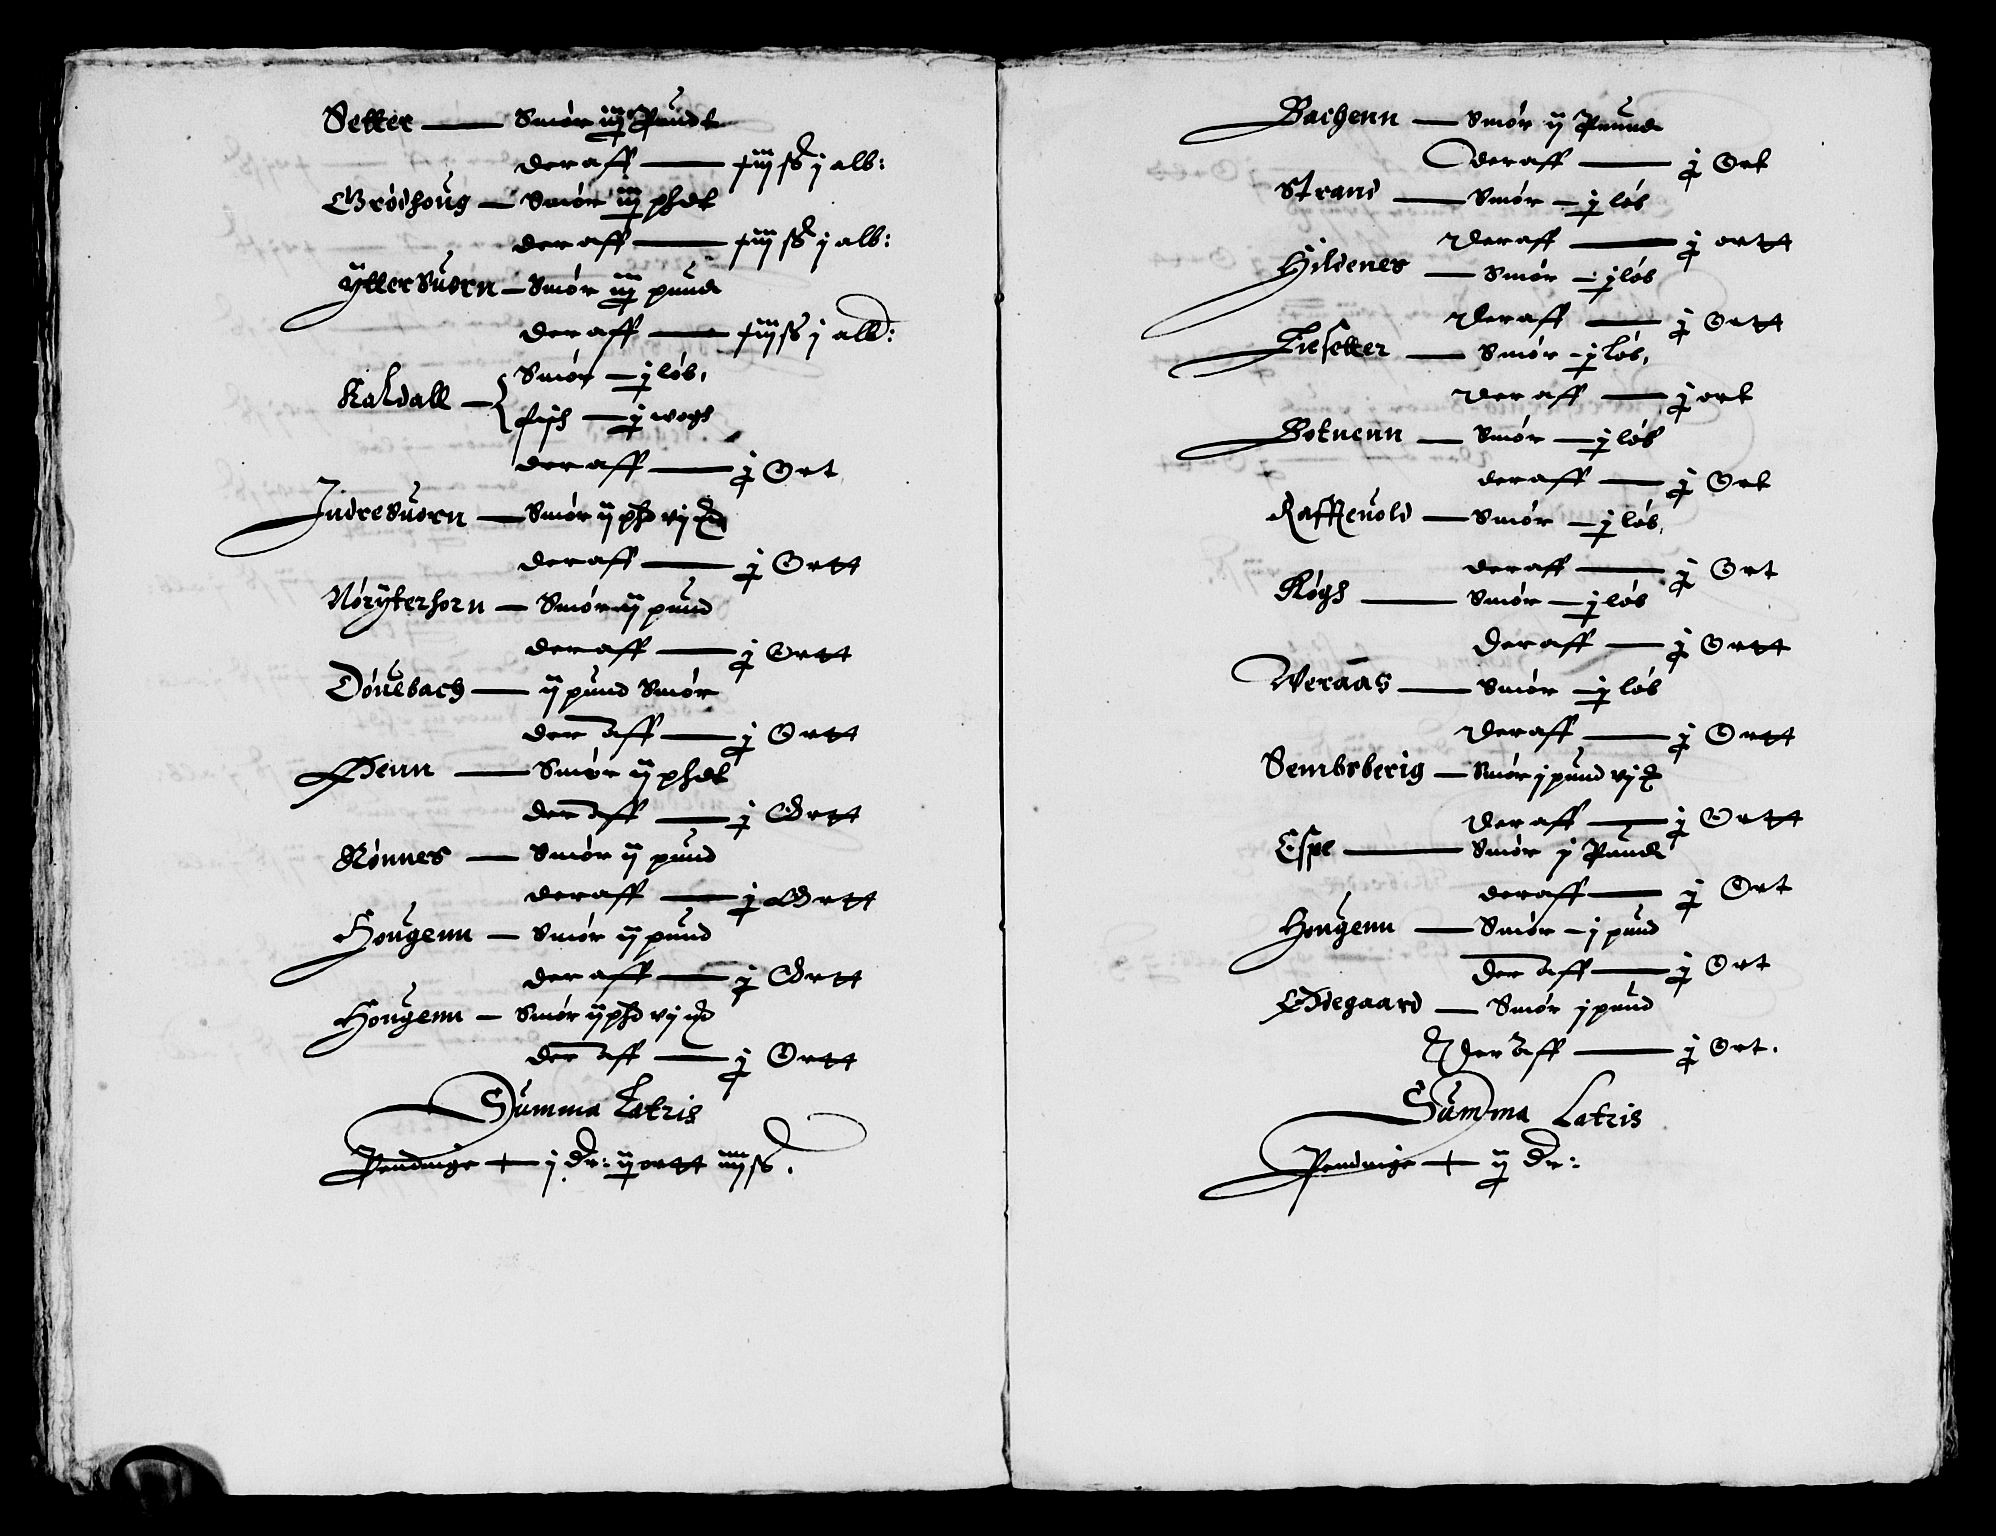 Setter — Smór iij Pundt
deraff — fiij ß j alb:
Gródhoug — Smór iij phdt
deraff — fiij ß j alb:
Ytter Suorn — Smór iij pund
deraff — fiij ß j alb:
Kaldall — Smór — j lób,
fish — j wogh
deraff — j Ort
Indre Suorn — Smór ij phd vj
deraff — j Ortt
Nórÿterhorn — Smór ij pund
deraff — j Ortt
Dóuebach — ij pund Smór
der aff — j Ortt
Henn — Smór ij phdt
der aff — j Ortt
Rónnes — Smór ij pund
deraff — j Ortt
Hougenn — Smór ij pund
deraff — j Ortt
Hougenn — Smór ij phd vj
der aff — j Ortt
Summa Latris
Pendinge — j dr: ij ortt iiij ß.
Bachenn — Smór ij Pund
deraff — j Ort
Strand — Smór — j lób
deraff — j ortt
Hildenes — Smór — j lób
deraff — j Ortt
Liesetter — Smór — j lób,
deraff — j ort
Botnenn — Smór — j lób
deraff — j Ort
Raffteuold — Smór — j lób,
deraff — j Ort
Rógh — Smór — j lób
deraff — j Ortt
Weraas — Smór — j lób
deraff — j Ortt
Sembsberig — Smór j pund vj
deraff — j Ortt
Espe — Smór j Pund
deraff — j Ort
Hougenn — Smór — j pund
der aff — j Ort
Ódegaard — Smór j pund
der aff — j Ort.
Summa Latris
Pendinge — ij dr: